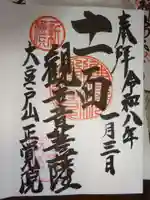 奉拝 令和八年
一月三日
十一面
観世音菩薩
大豆戸山 正覚院